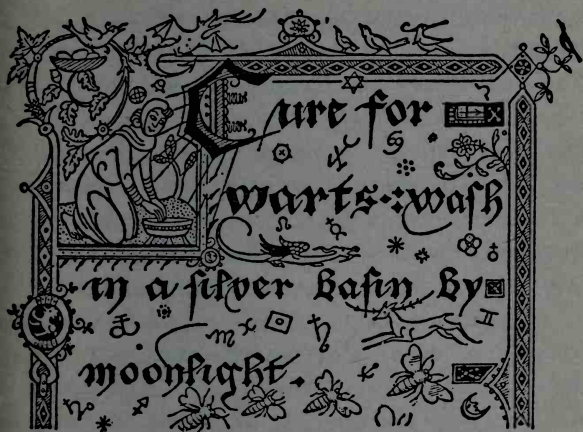 Cure for
warts: wash
in a silver basin by
moonlight.